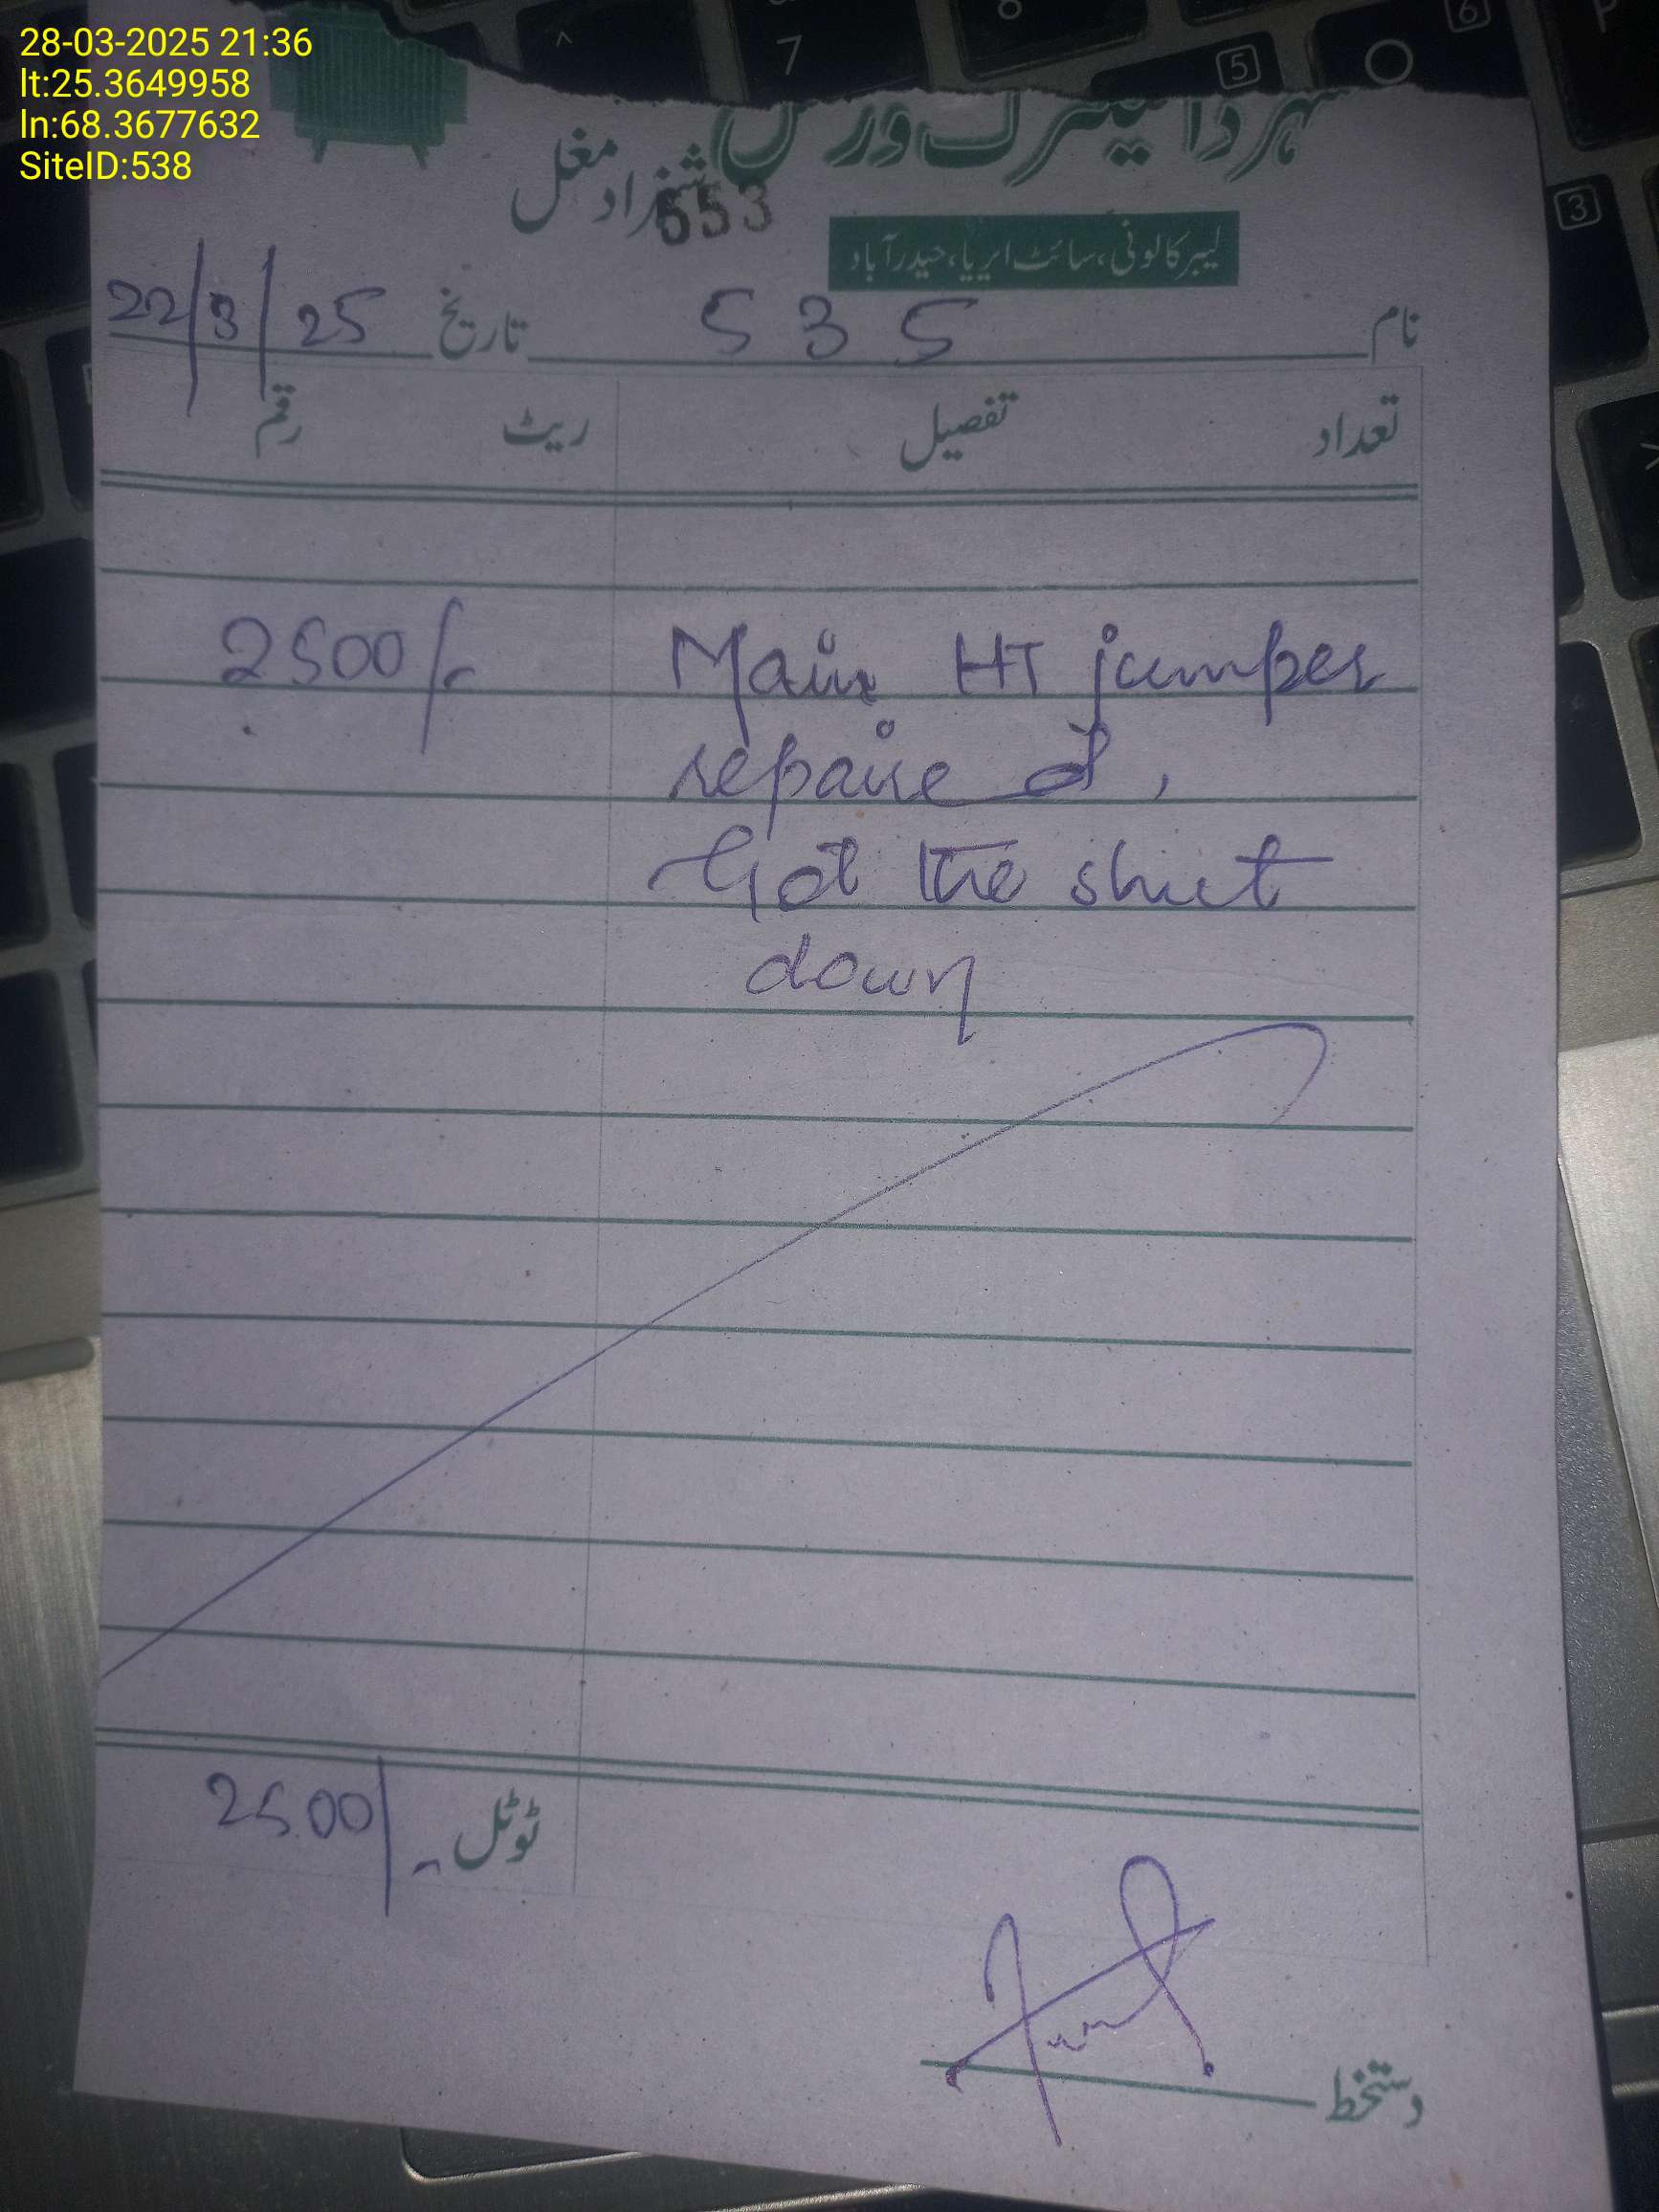 28-03-2025 21:36
lt:25.3649958
ln:68.3677632
SiteID:538
شہزاد مغل
553
لیبر کالونی، سائٹ ایریا، حیدرآباد
نام 535 تاریخ 22/3/25
تعداد تفصیل ریٹ رقم
Main HT jumper 2500/-
repaired,
Got the shut
down
ٹوٹل 2500/-
دستخط